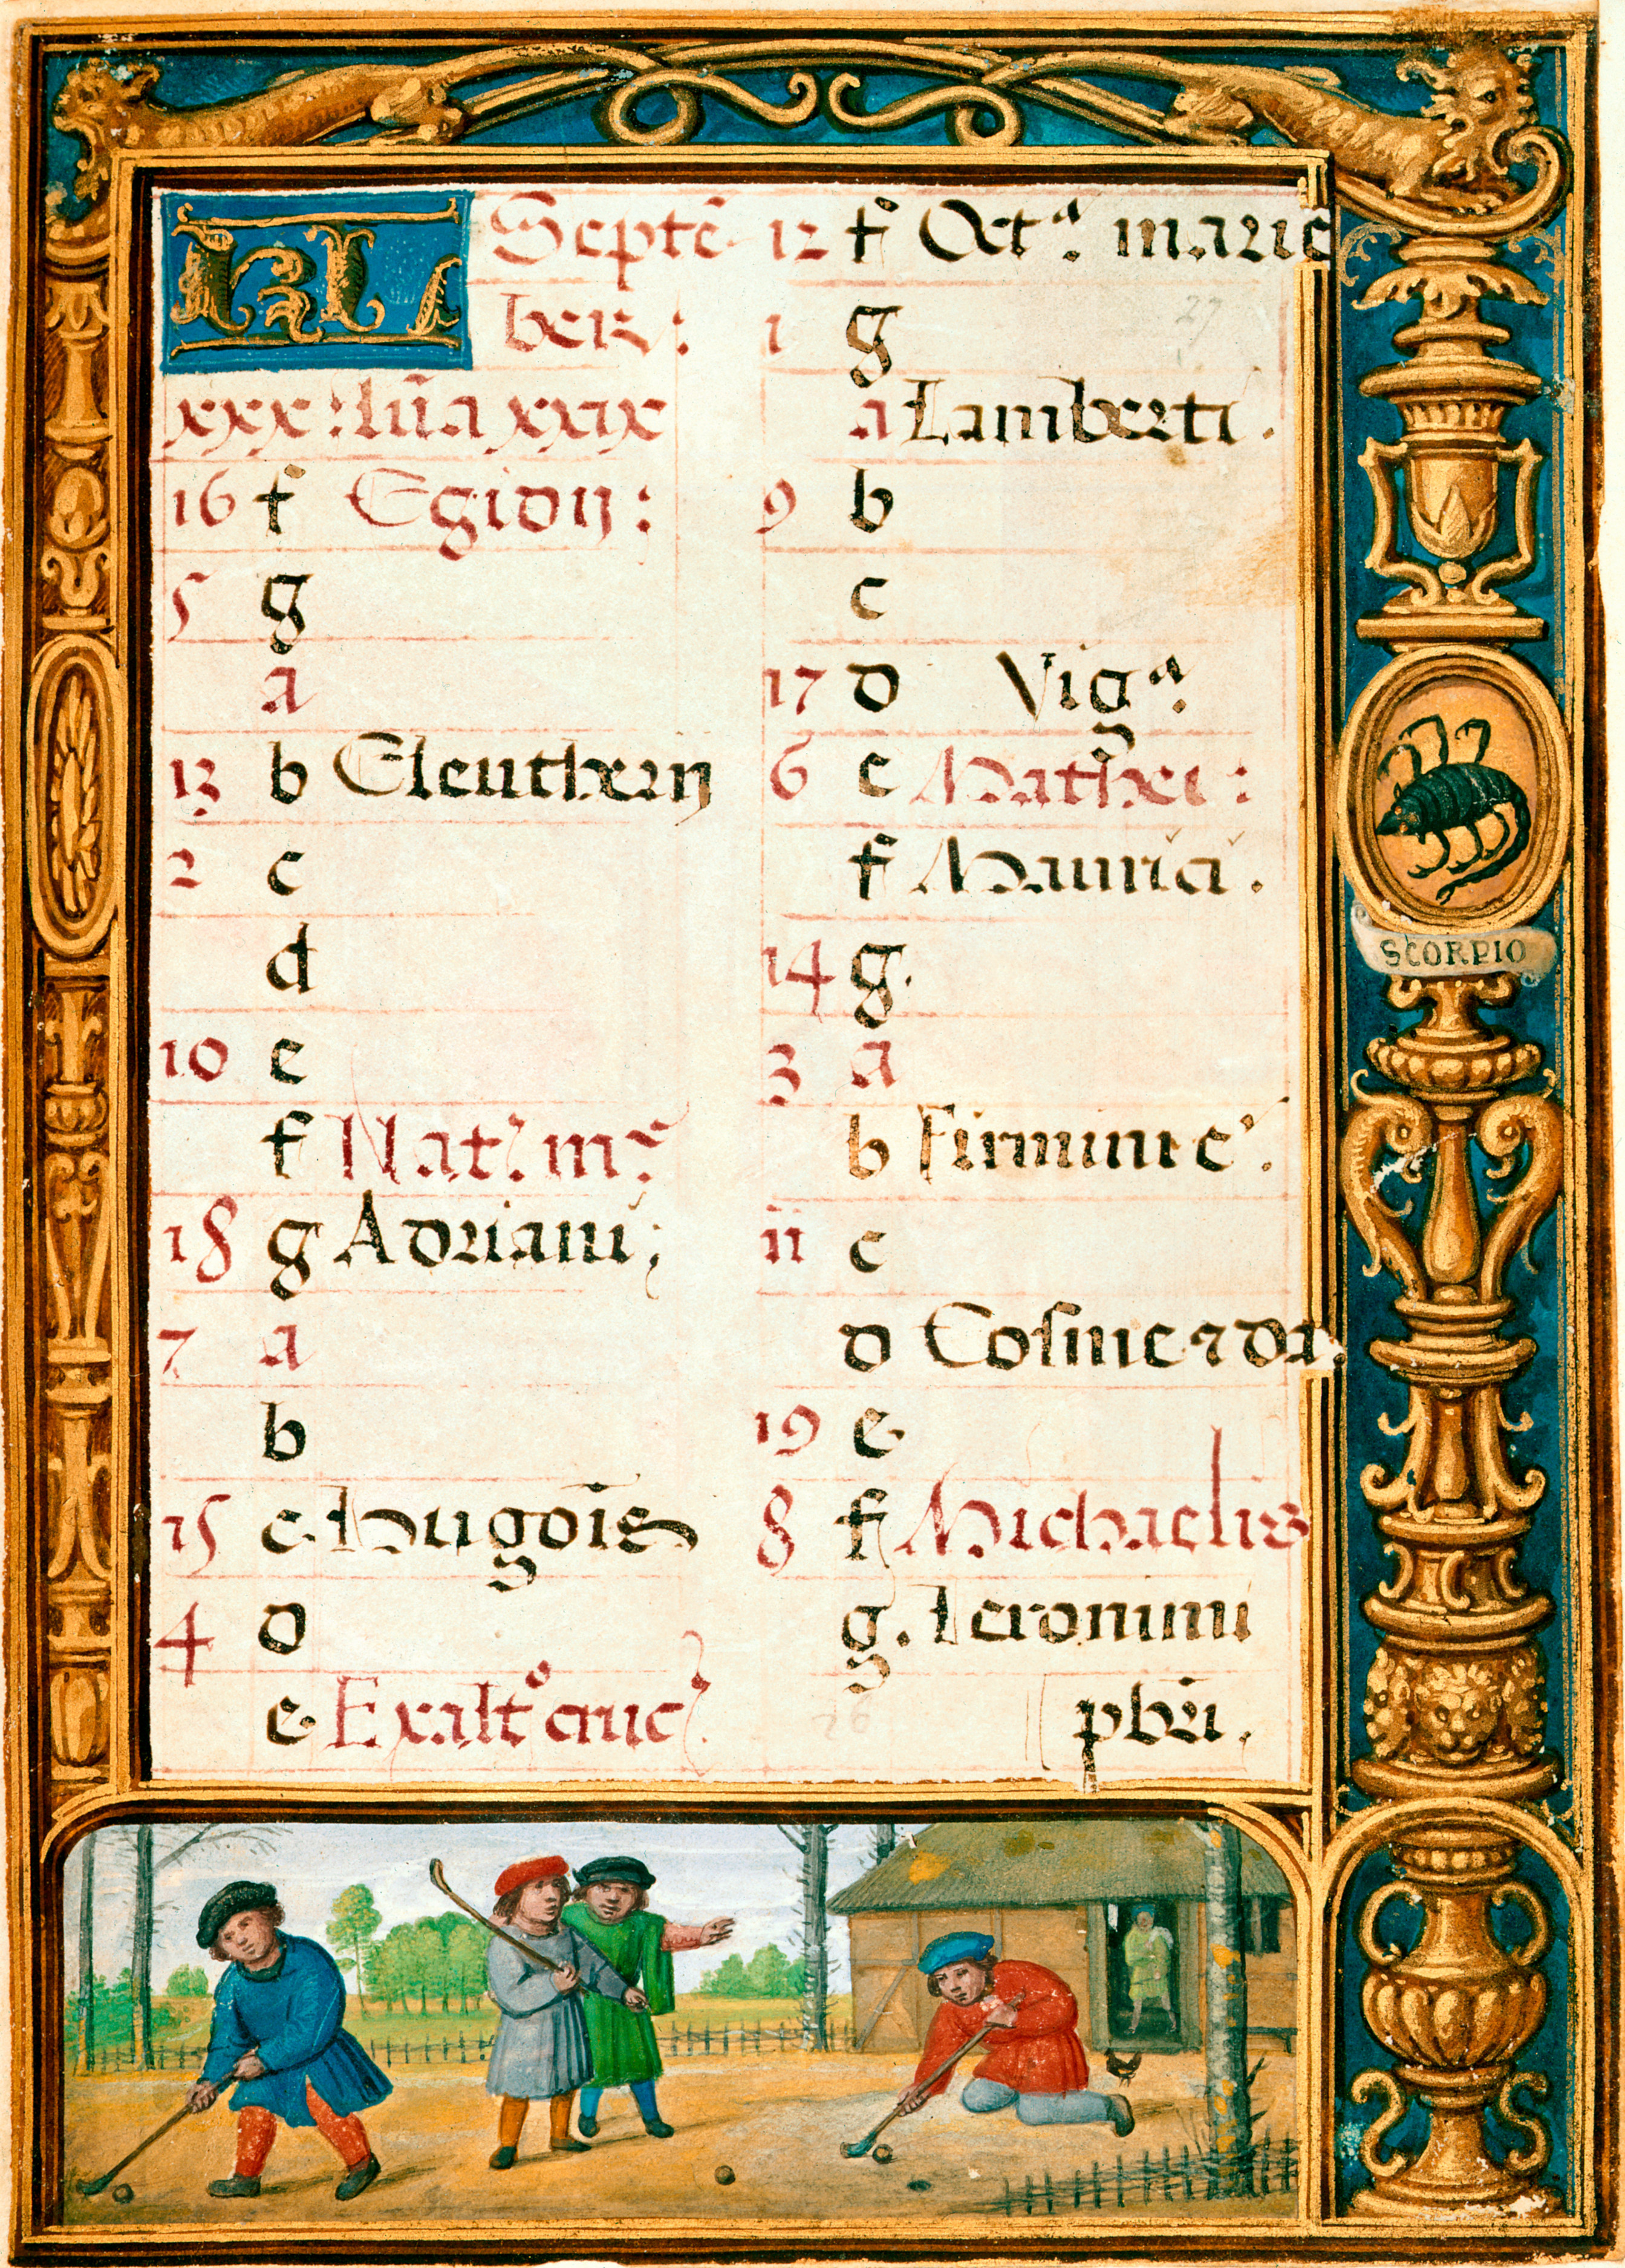 KL Septē
ber :
xxx : lūa xxix
16 f Egidij :
5 g
a
13 b Eleutherij
2 c
d
10 e
f Nat. mͤ
18 g Adriani ;
7 a
b
15 c Hugois̄
4 d
e Exaltº cruc
12 f Octª. marie
1 g
a Lamberti .
9 b
c
17 d Vigª.
6 e Mathei :
f Mauricii .
14 g .
3 a
b Firmini e .
11 c
d Cosme ⁊ da .
19 e
8 f Michaelis
g . Ieronimi
pbri .
SCORPIO
27